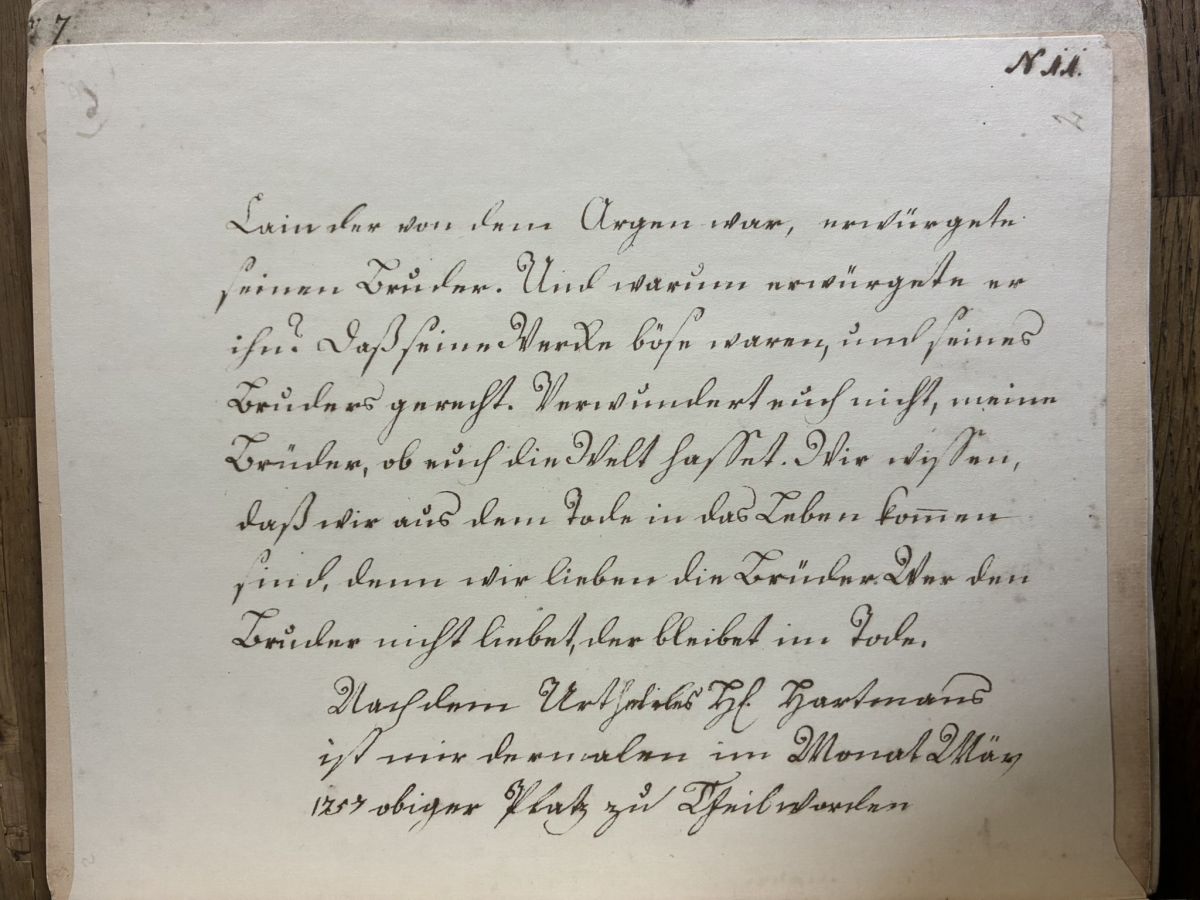 7.
N 11.
Cain der von dem Argen war, erwürgete
seinen Bruder. Und warum erwürgete er
ihn? Daß seine Werke böse waren, und seines
Bruders gerecht. Verwundert euch nicht, meine
Brüder, ob euch die Welt hasset. Wir wissen,
daß wir aus dem Tode in das Leben kom̅en
sind, denn wir lieben die Brüder. Wer den
Bruder nicht liebet, der bleibet im Tode.
Nach dem Urtheiles H. Hartmans
ist mir dermalen im Monat März
1757 obiger Platz zu Theil worden